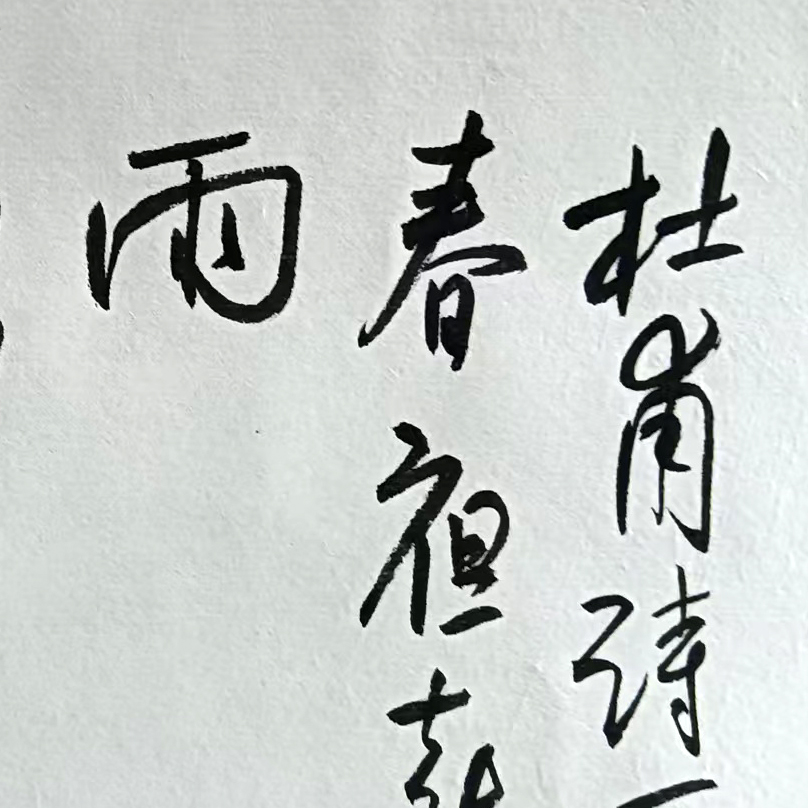 杜甫诗
春夜喜
雨